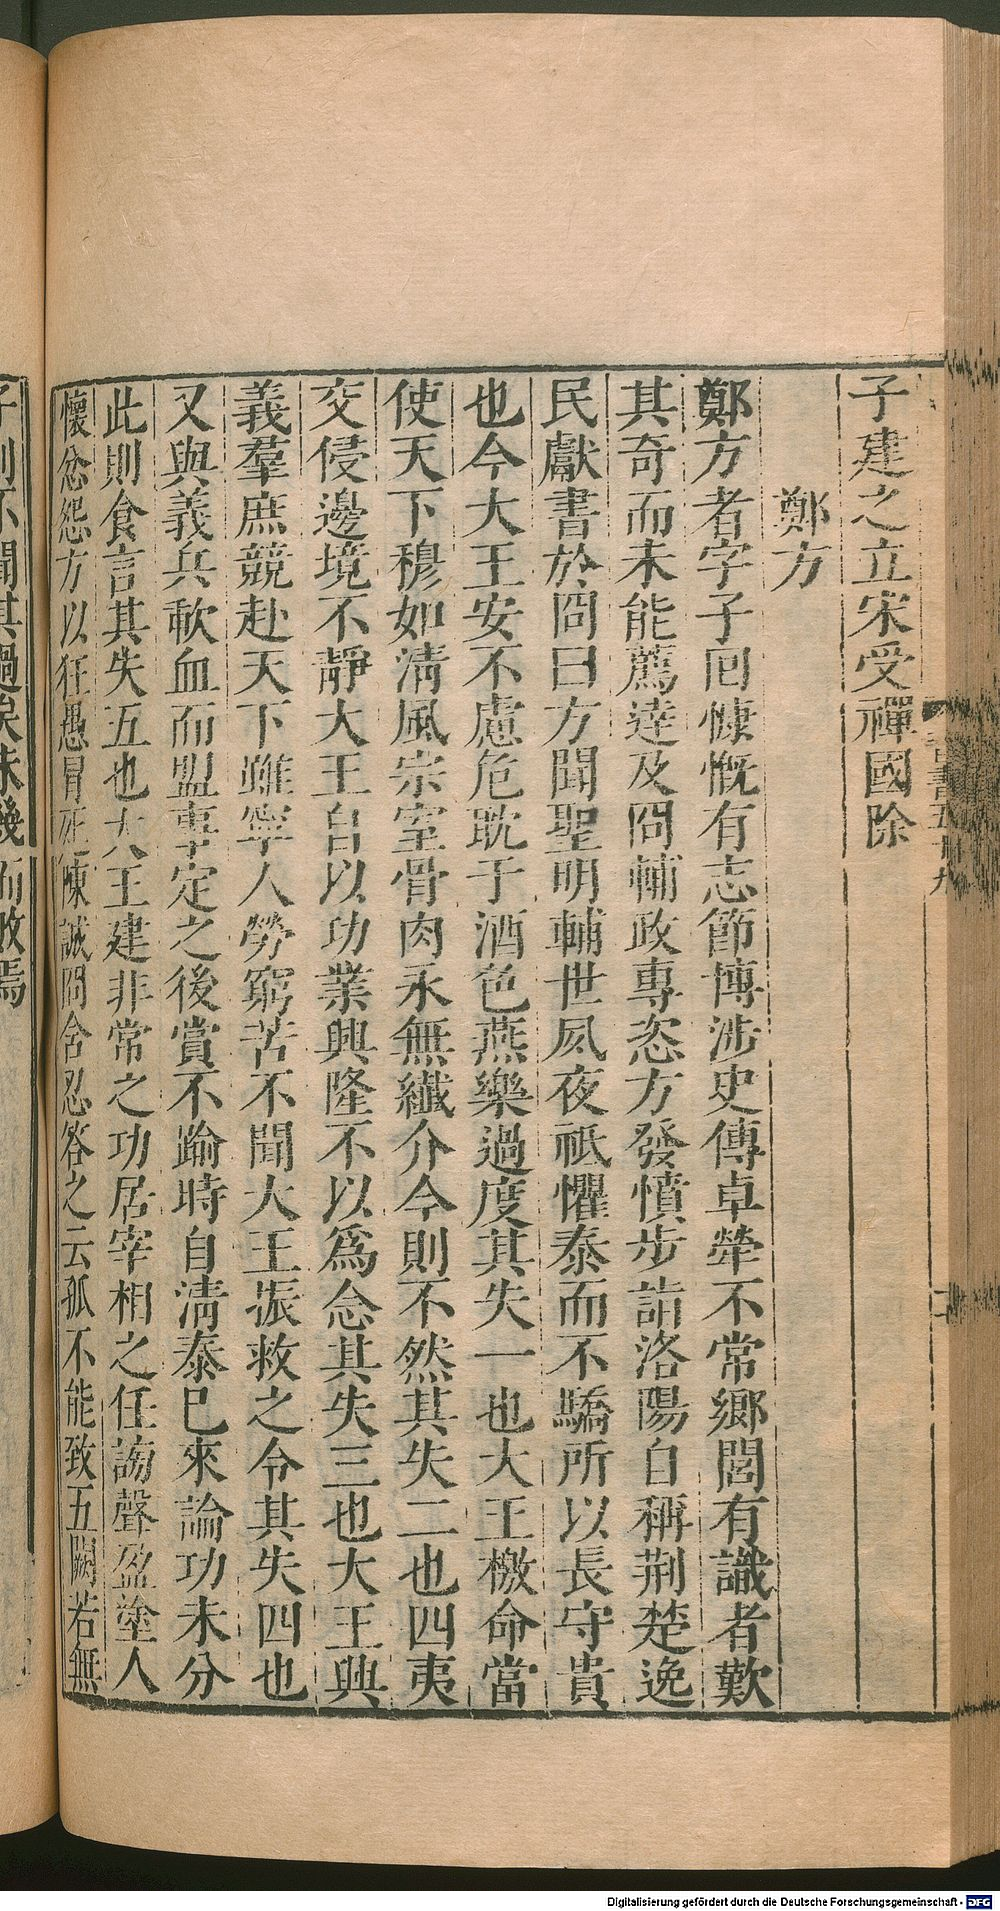 子建之立宋受禪國除
鄭方
鄭方者字子囘慷慨有志節博涉史傳卓犖不常鄉閭有識者歎
其奇而未能薦達及冏輔政專恣方發憤步詣洛陽自稱荆楚逸
民獻書於冏曰方聞聖明輔世夙夜祗懼泰而不驕所以長守貴
也今大王安不慮危耽于酒色燕樂過度其失一也大王檄命當
使天下穆如淸風宗室骨肉永無纎介今則不然其失二也四夷
交侵邊境不靜大王自以功業興隆不以爲念其失三也大王興
義羣庶競赴天下雖寧人勞窮苦不聞大王振救之令其失四也
又與義兵歃血而盟事定之後賞不踰時自淸泰已來論功未分
此則食言其失五也大王建非常之功居宰相之任謗聲盈塗人
懷忿怨方以狂愚冒死陳誠冏含忍答之云孤不能致五闕若無
子則不聞其過矣未幾而敗焉
Digitalisierung gefördert durch die Deutsche Forschungsgemeinschaft - DFG